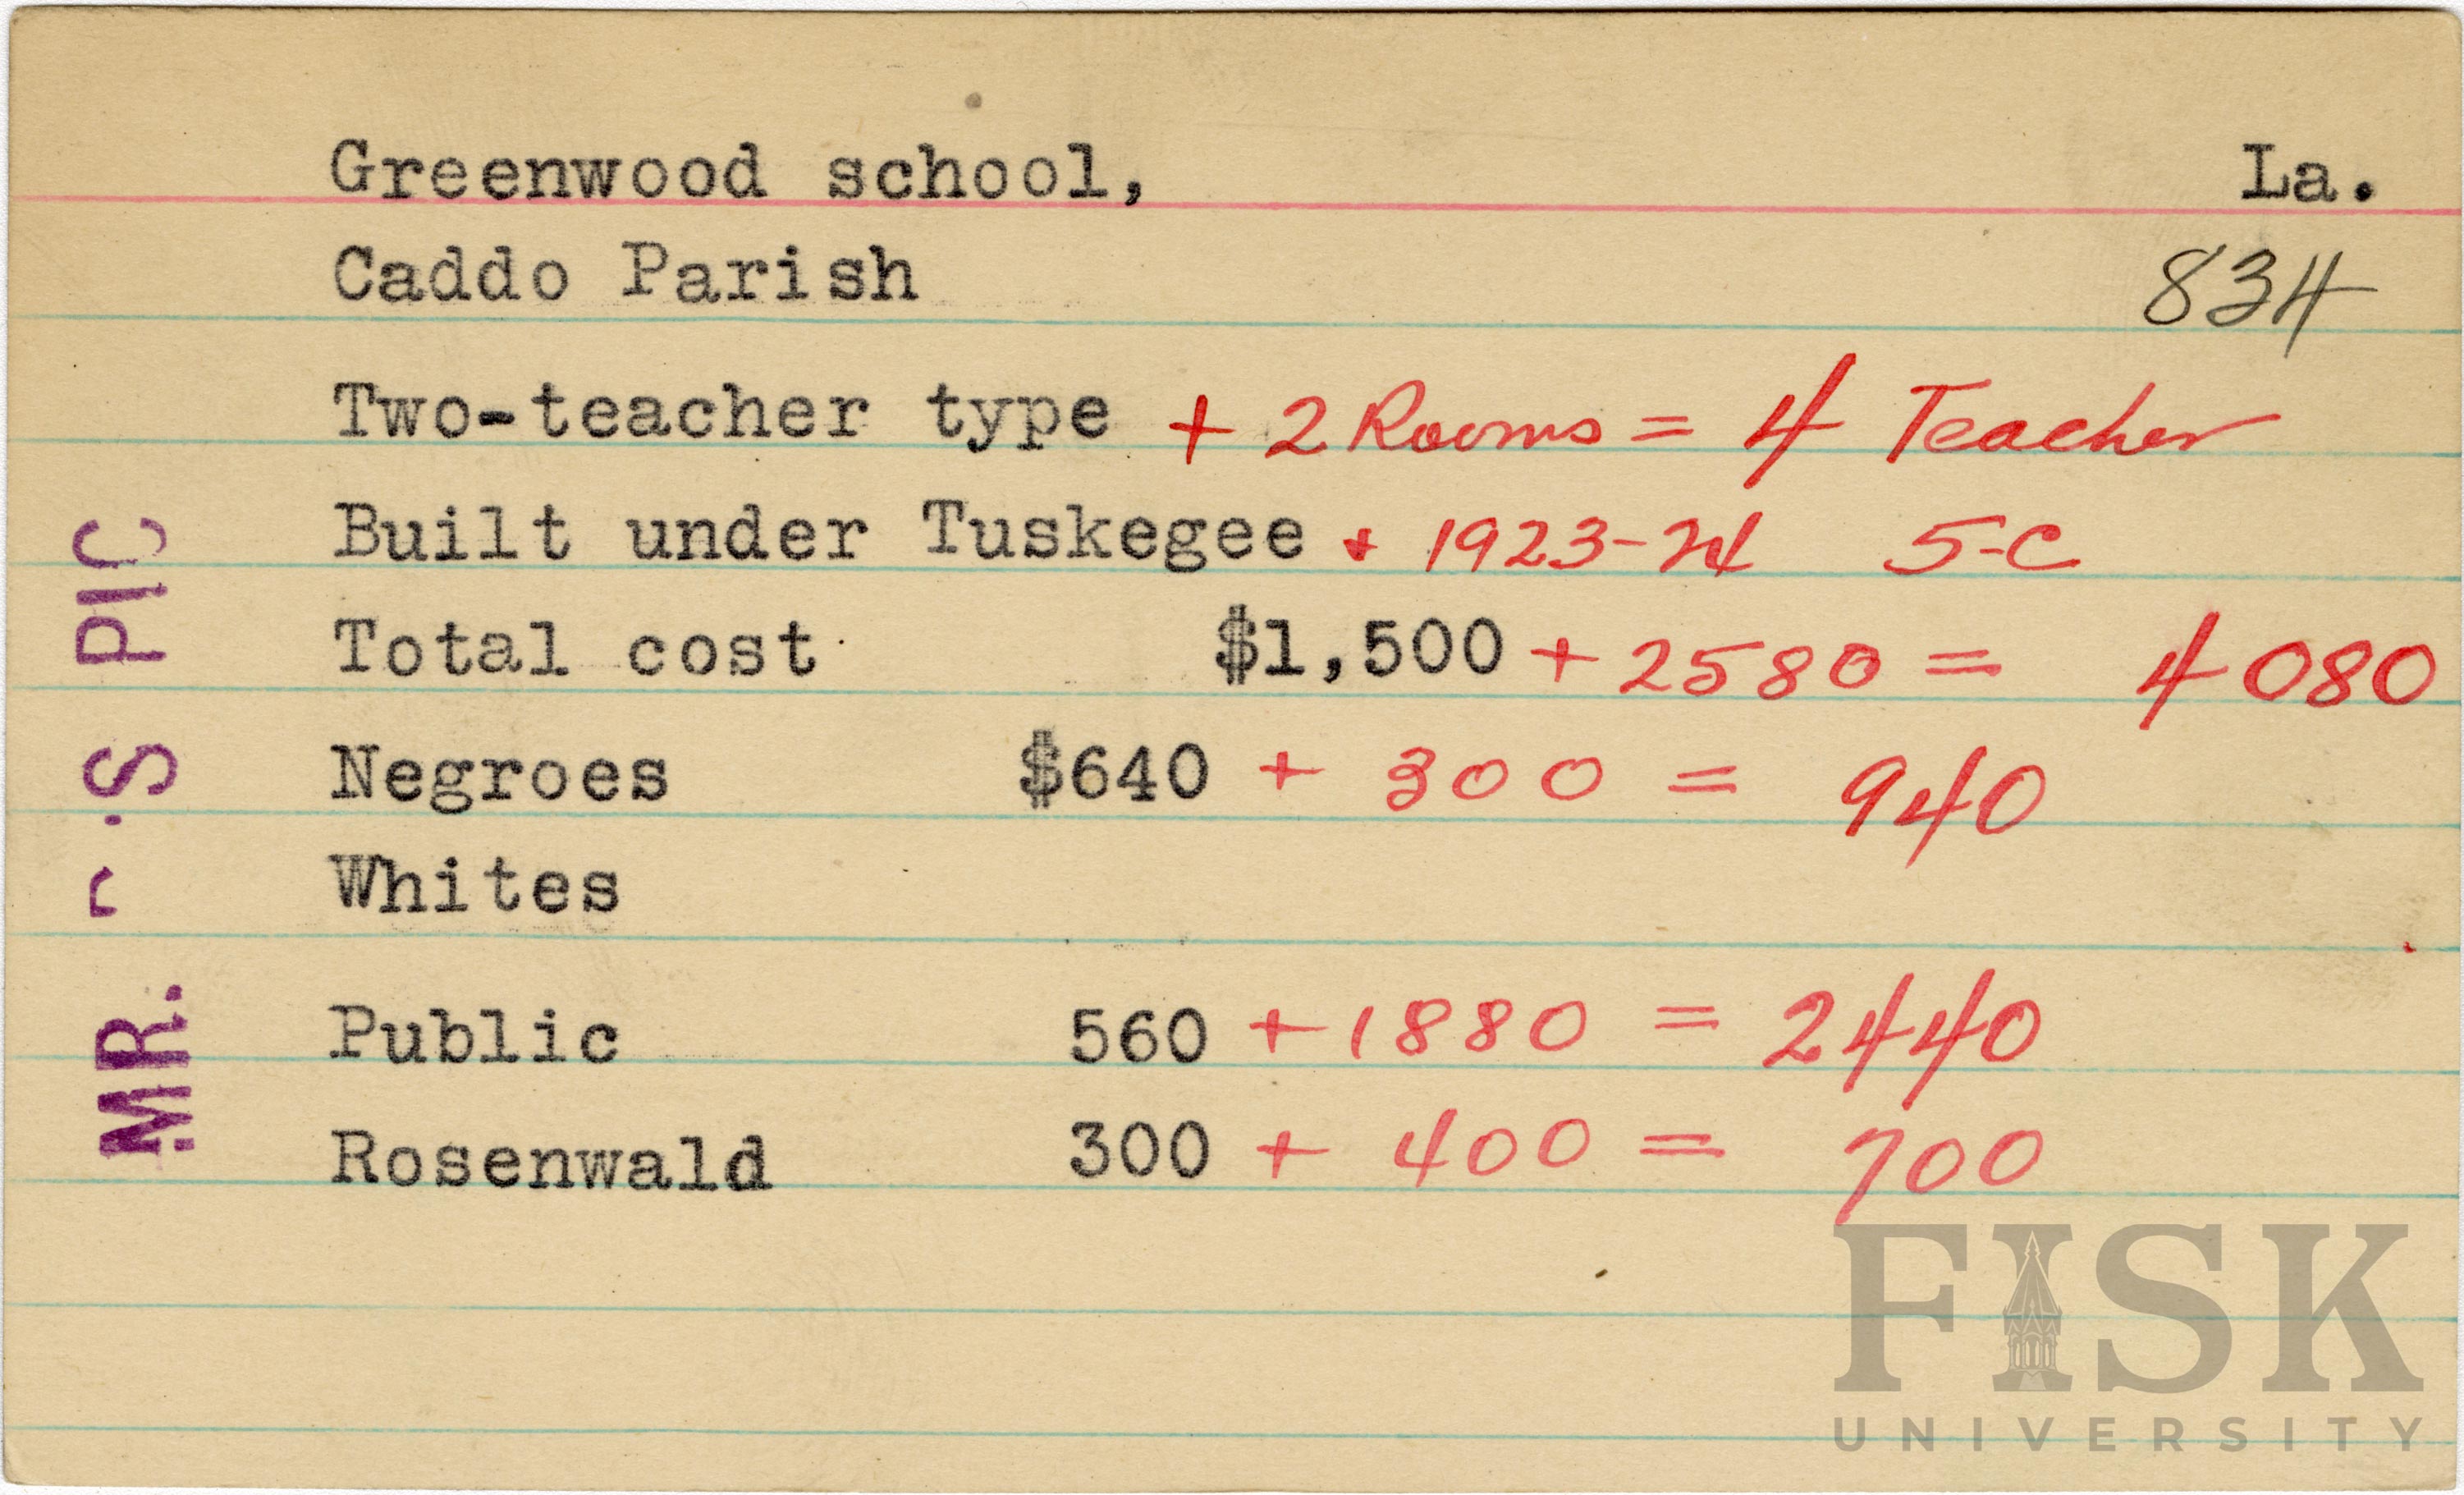 Greenwood school, La.
Caddo Parish 834
Two-teacher type + 2 Rooms = 4 Teacher
Built under Tuskegee + 1923-24 5-C
Total cost $1,500 + 2580 = 4080
Negroes $640 + 300 = 940
Whites
Public 560 + 1880 = 2440
Rosenwald 300 + 400 = 700
MR. S PIC
FISK
UNIVERSITY